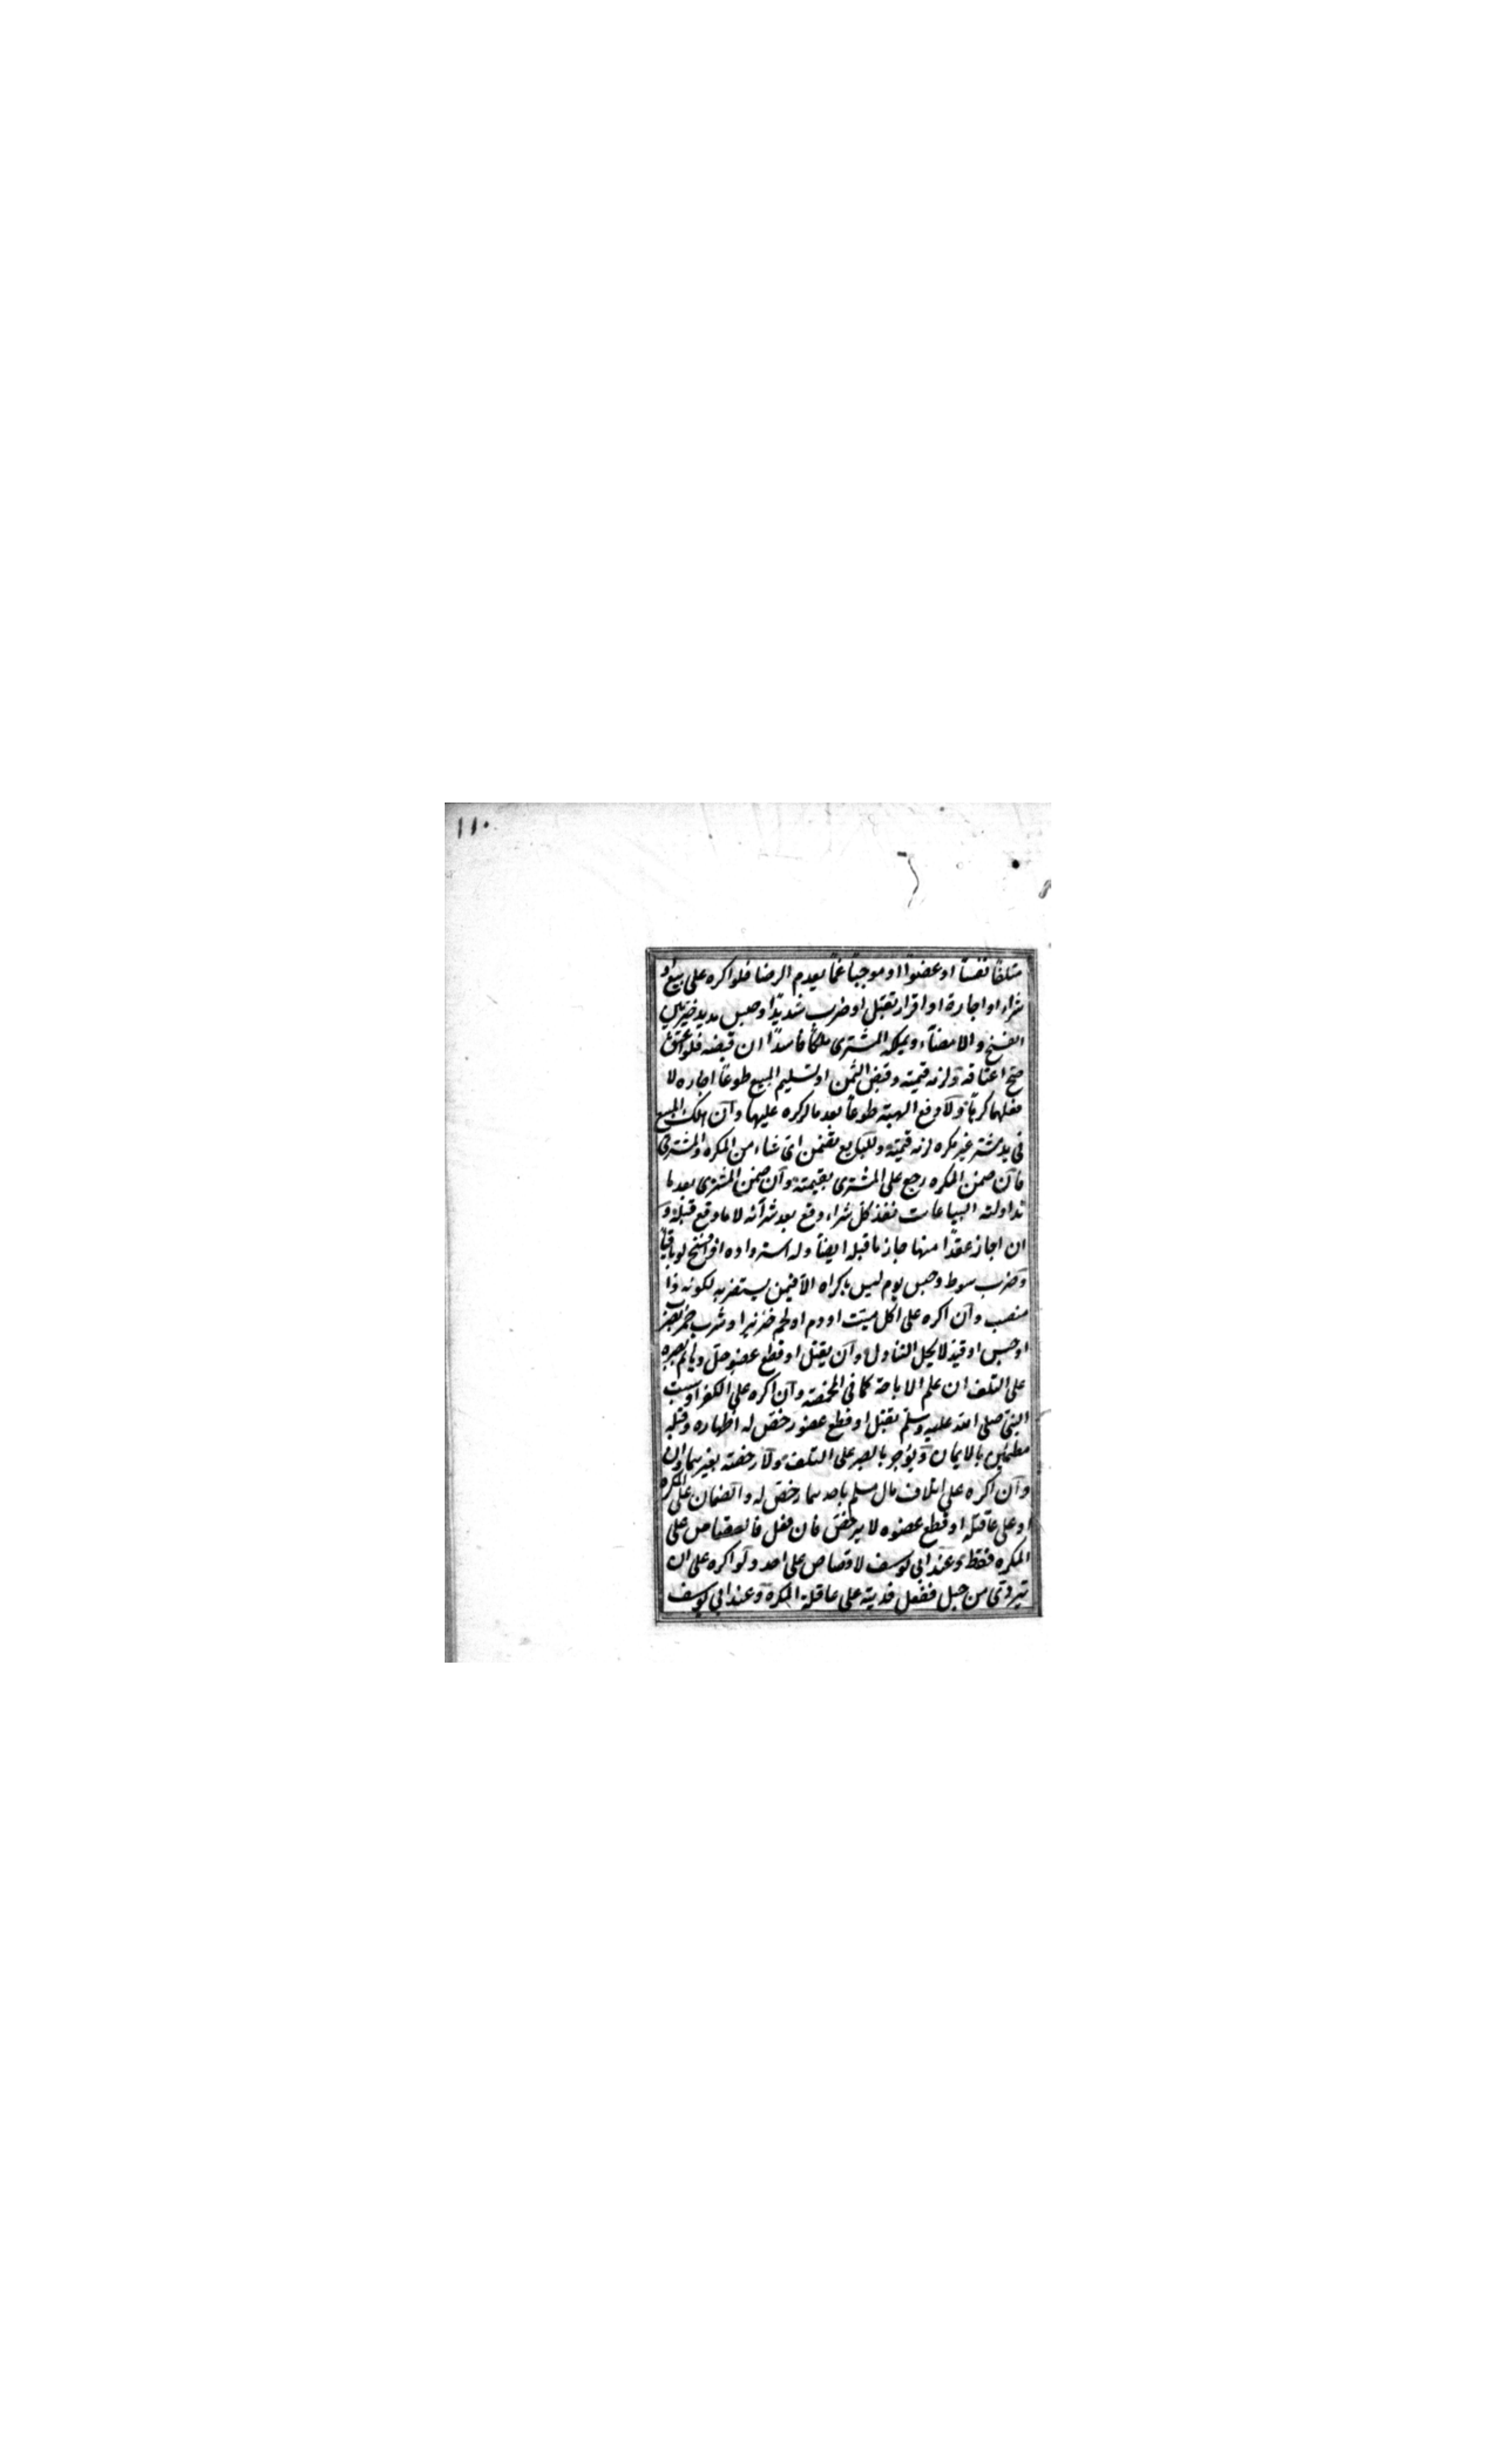 ١١٠
متلفًا نفسًا او عضوًا او موجبًا غمًّا يعدم الرضا فلو اكره على بيع او
شراء او اجارة او اقرار بقتل او ضرب شديد او حبس مديد خيّر بين
الفسخ والامضاء ويملكه المشترى ملكًا فاسدًا ان قبضه فلو اعتق
صح اعتاقه ولزمه قيمته وقبض الثمن او تسليم المبيع طوعًا اجازة لا
فعلهما كرهًا ولا دفع الهبة طوعًا بعد ما اكره عليها وان هلك المبيع
فى يد مشتر غير مكره لزمه قيمته وللبايع تضمين اى شاء من المكره والمشترى
فان ضمن المكره رجع على المشترى بقيمته وان ضمن المشترى بعد ما
تداولته البياعات نفذ كل شراء وقع بعد شرآئه لا ما وقع قبله و
ان اجاز عقدًا منها جاز ما قبله ايضًا وله استرداده ان فسخ لو باقيًا
وضرب سوط وحبس يوم ليس باكراه الا فيمن يستضر به لكونه ذا
منصب وان اكره على اكل ميتة او دم او لحم خنزير او شرب خمر بضرب
او حبس او قيد لا يحل التناول وان بقتل او قطع عضو حل وياثم بصبره
على التلف ان علم الاباحة كما فى المخمصة وان اكره على الكفر او سبّ
النبى صلى الله عليه وسلم بقتل او قطع عضو رخص له اظهاره وقلبه
مطمئن بالايمان ويؤجر بالصبر على التلف ولا رخصة بغيرهما وان
وان اكره على اتلاف مال مسلم باحدهما رخص له والضمان على المكره
او على قتله او قطع عضوه لا يرخص فان فعل فالقصاص على
المكره فقط وعند ابى يوسف لا قصاص على احد ولو اكره على ان
تيردى من جبل ففعل فديته على عاقلة المكره وعند ابى يوسف